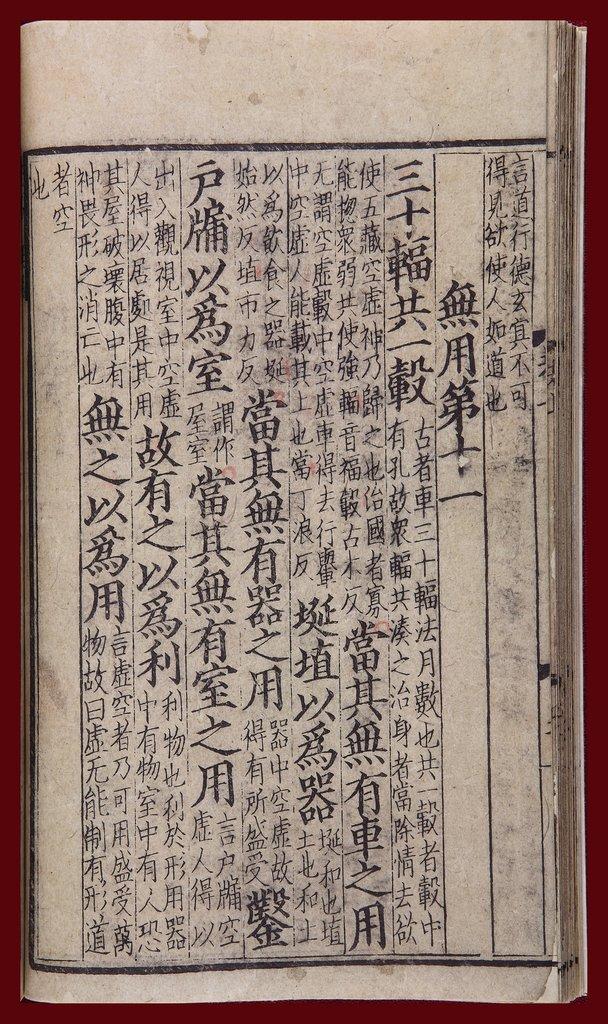 言道行德玄冥不可
得見欲使人如道也
無用第十一
三十輻共一轂
古者車三十輻法月數也共一轂者轂中
有孔故衆輻共湊之治身者當除情去欲
使五藏空虛神乃歸之也治國者寡
能摠衆弱共使強輻音福轂古木反
當其無有車之用
无謂空虛轂中空虛車得去行轝
中空虛人能載其上也當丁浪反
埏埴以為器
埏和也埴
土也和土
以為飲食之器埏
始然反埴市力反
當其無有器之用
器中空虛故
得有所盛受
鑿
戶牖以為室
謂作
屋室
當其無有室之用
言戶牖空
虛人得以
出入觀視室中空虛
人得以居處是其用
故有之以為利
利物也利於形用器
中有物室中有人恐
其屋破壞腹中有
神畏形之消亡也
無之以為用
言虛空者乃可用盛受萬
物故曰虛无能制有形道
者空
也